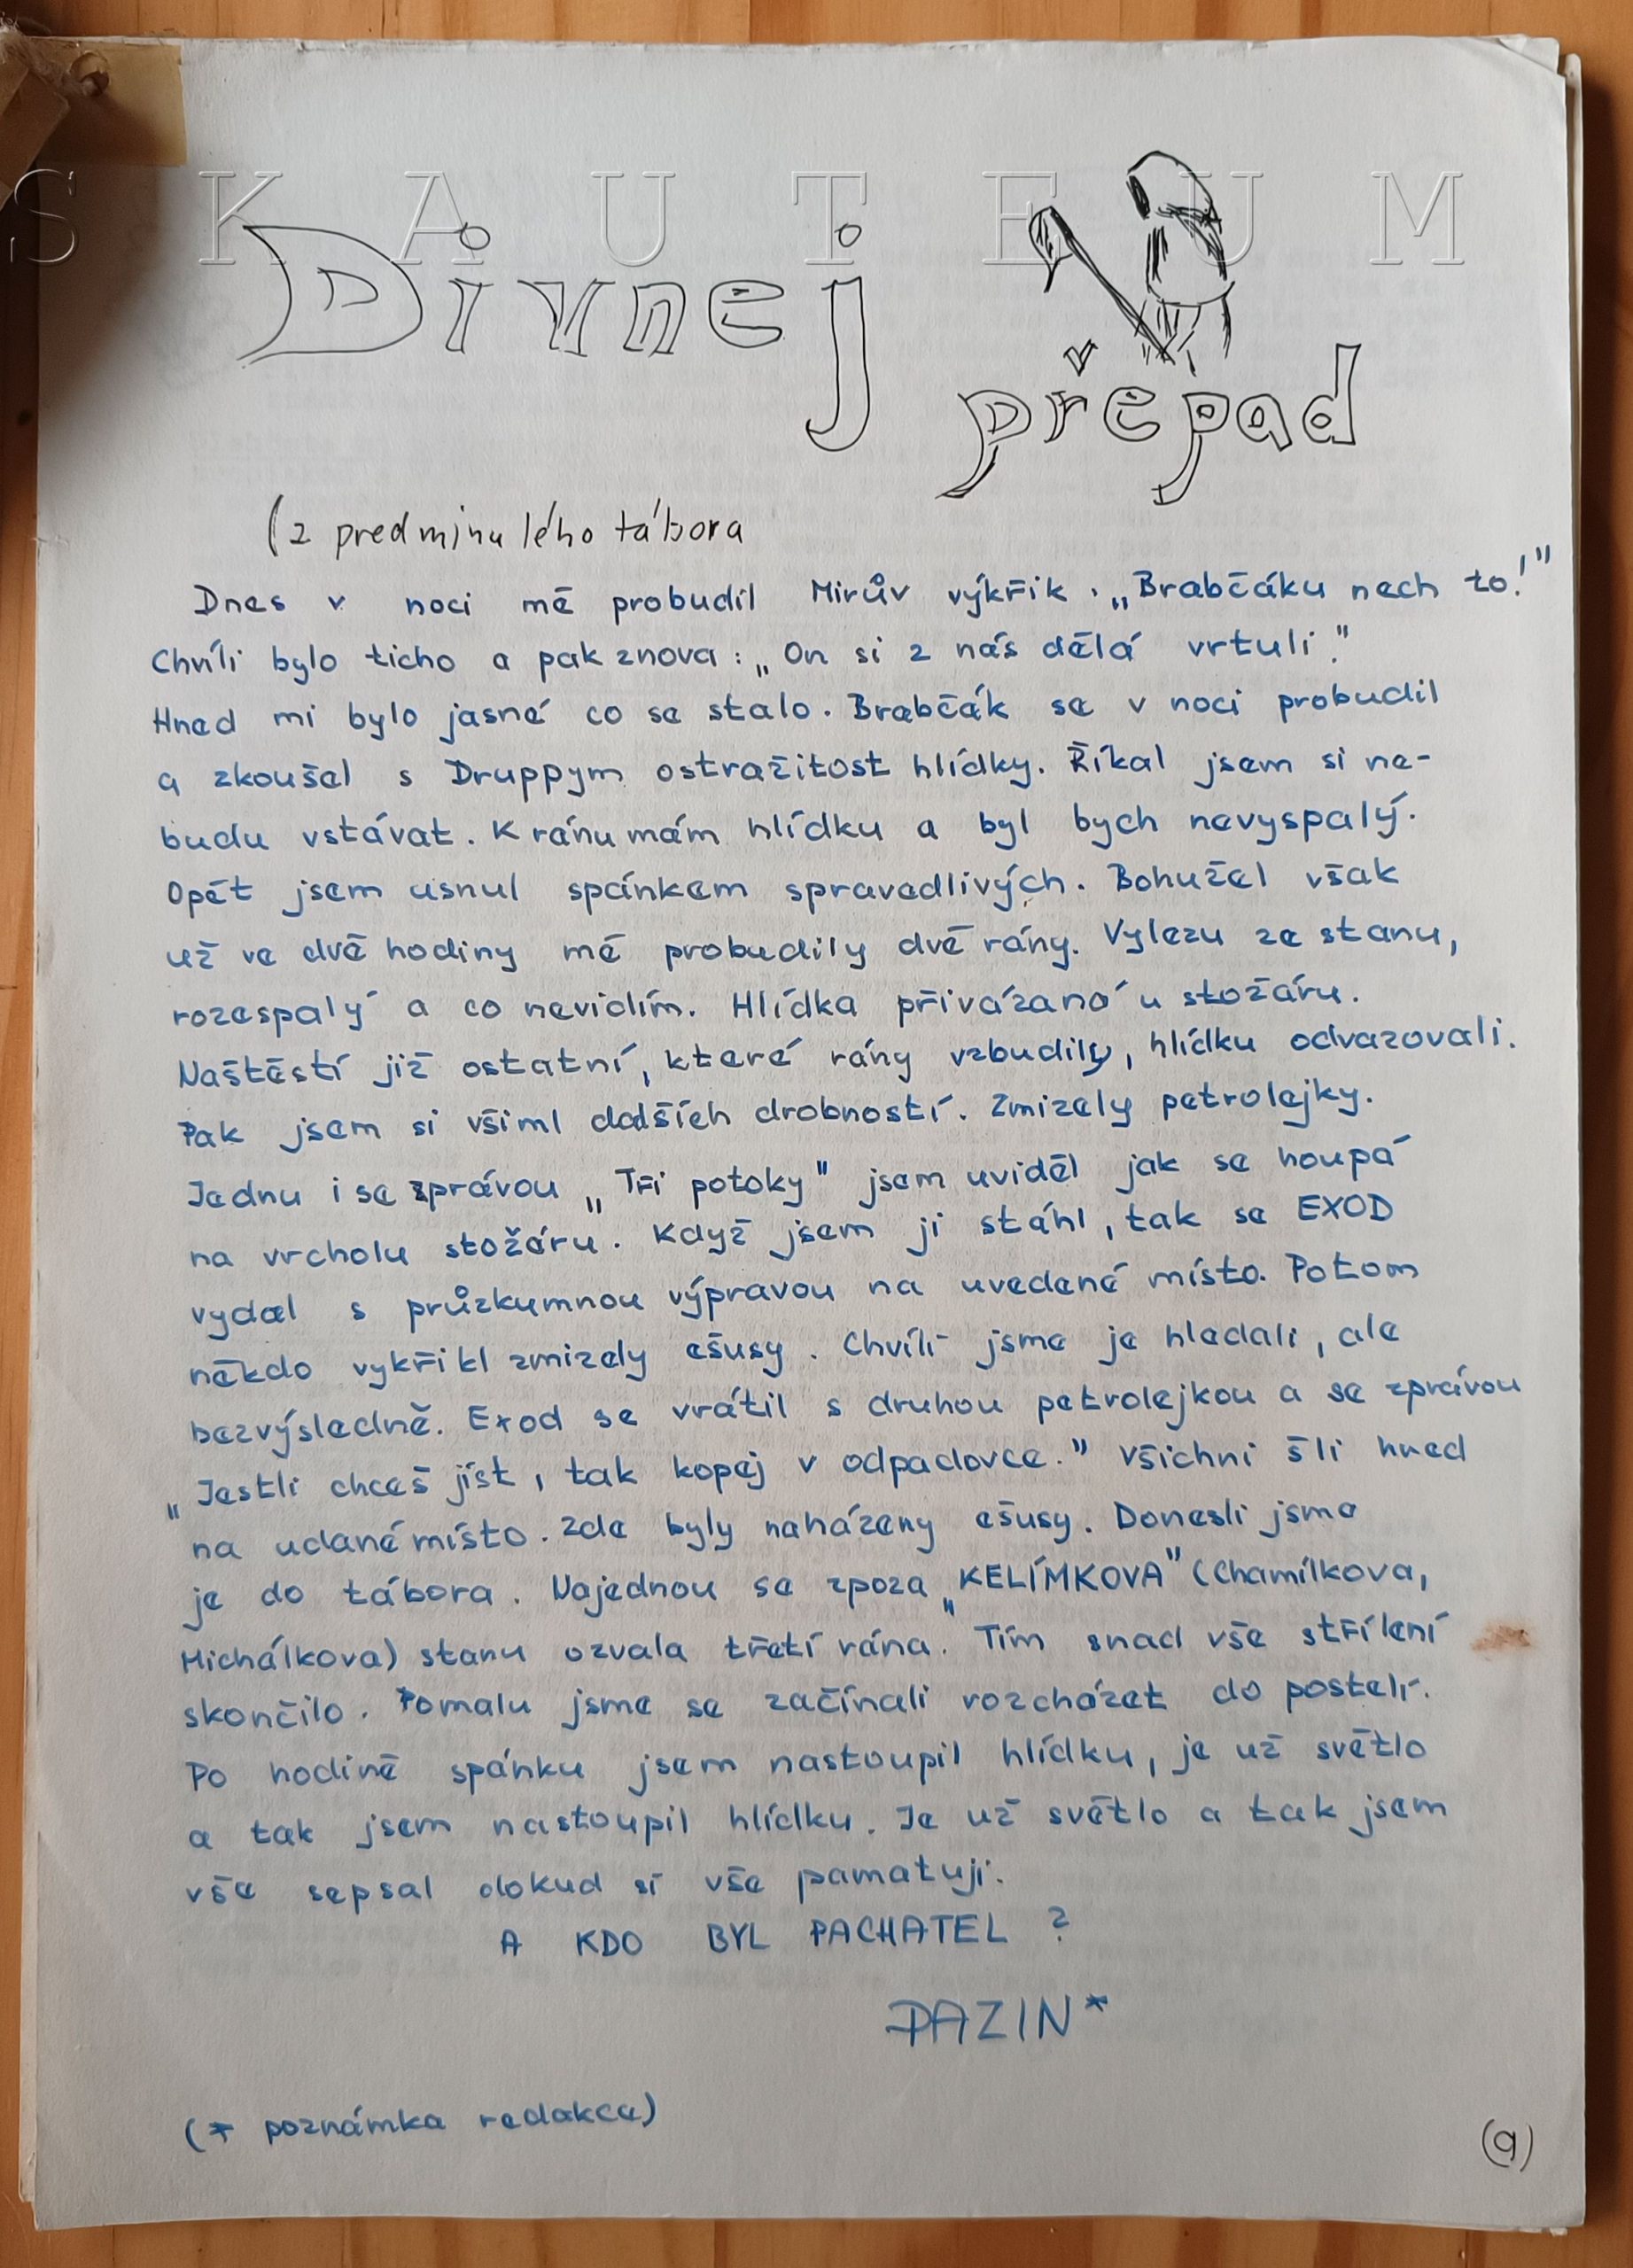 SKAUTEUM
Divnej
přepad
(z predminulého tábora
Dnes v noci mě probudil Mirův výkřik. „Brabčáku nech to!"
Chvíli bylo ticho a pak znova: „On si z nás dělá vrtuli."
Hned mi bylo jasné co se stalo. Brabčák se v noci probudil
a zkoušel s Druppym ostražitost hlídky. Říkal jsem si ne-
budu vstávat. K ránu mám hlídku a byl bych nevyspalý.
Opět jsem usnul spánkem spravedlivých. Bohužel však
už ve dvě hodiny mě probudily dvě rány. Vylezu ze stanu,
rozespalý a co nevidím. Hlídka přivázaná u stožáru.
Naštěstí již ostatní, které rány vzbudily, hlídku odvazovali.
Pak jsem si všiml dalších drobností. Zmizely petrolejky.
Jednu i se zprávou „Tři potoky" jsem uviděl jak se houpá
na vrcholu stožáru. Když jsem ji stáhl, tak se EXOD
vydal s průzkumnou výpravou na uvedené místo. Potom
někdo vykřikl zmizely ešusy. Chvíli jsme je hledali, ale
bezvýsledně. Exod se vrátil s druhou petrolejkou a se zprávou
„Jestli chceš jíst, tak kopej v odpadovce." Všichni šli hned
na udané místo. Zde byly naházeny ešusy. Donesli jsme
je do tábora. Najednou se zpoza „KELÍMKOVA" (Chamílkova,
Michálkova) stanu ozvala třetí rána. Tím snad vše střílení
skončilo. Pomalu jsme se začínali rozcházet do postelí.
Po hodině spánku jsem nastoupil hlídku, je už světlo
a tak jsem nastoupil hlídku. Je už světlo a tak jsem
vše sepsal dokud si vše pamatuji.
A KDO BYL PACHATEL ?
PAZIN*
(* poznámka redakce)
(9)